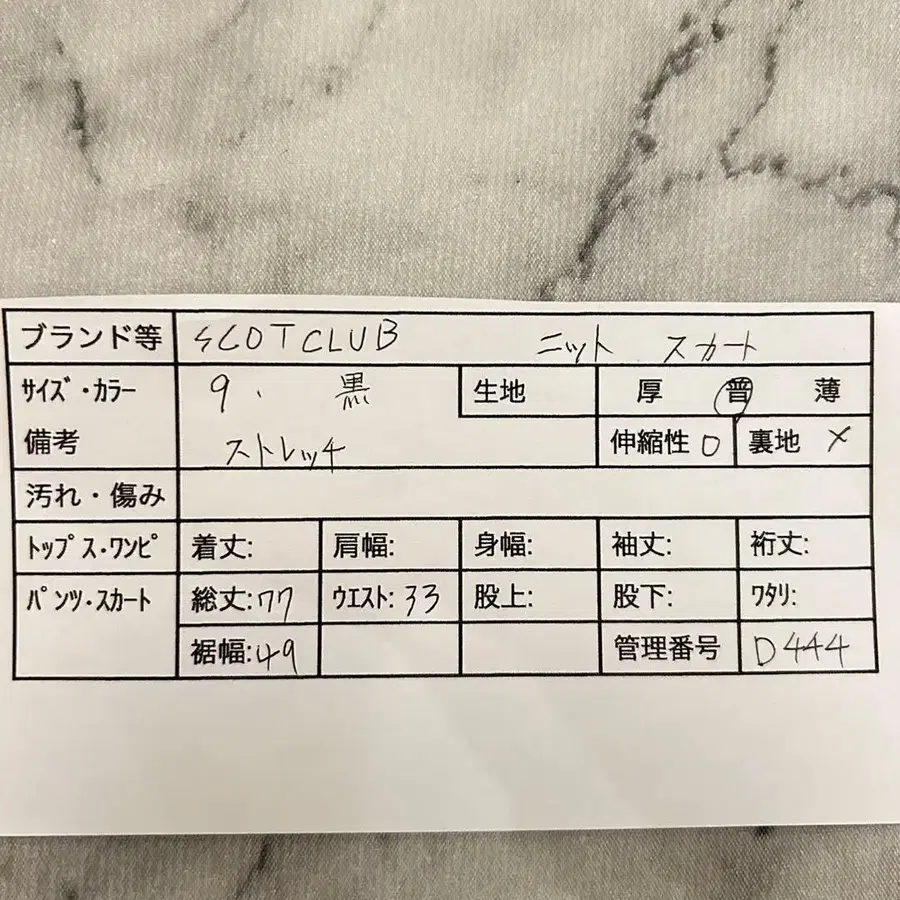 ブランド等 SCOT CLUB ニット スカート
サイズ・カラー 9. 黒 生地 厚 普 薄
備考 ストレッチ 伸縮性 O 裏地 ×
汚れ・傷み
トップス・ワンピ 着丈: 肩幅: 身幅: 袖丈: 裄丈:
パンツ・スカート 総丈:77 ウエスト:33 股上: 股下: ワタリ:
裾幅:49 管理番号 D444